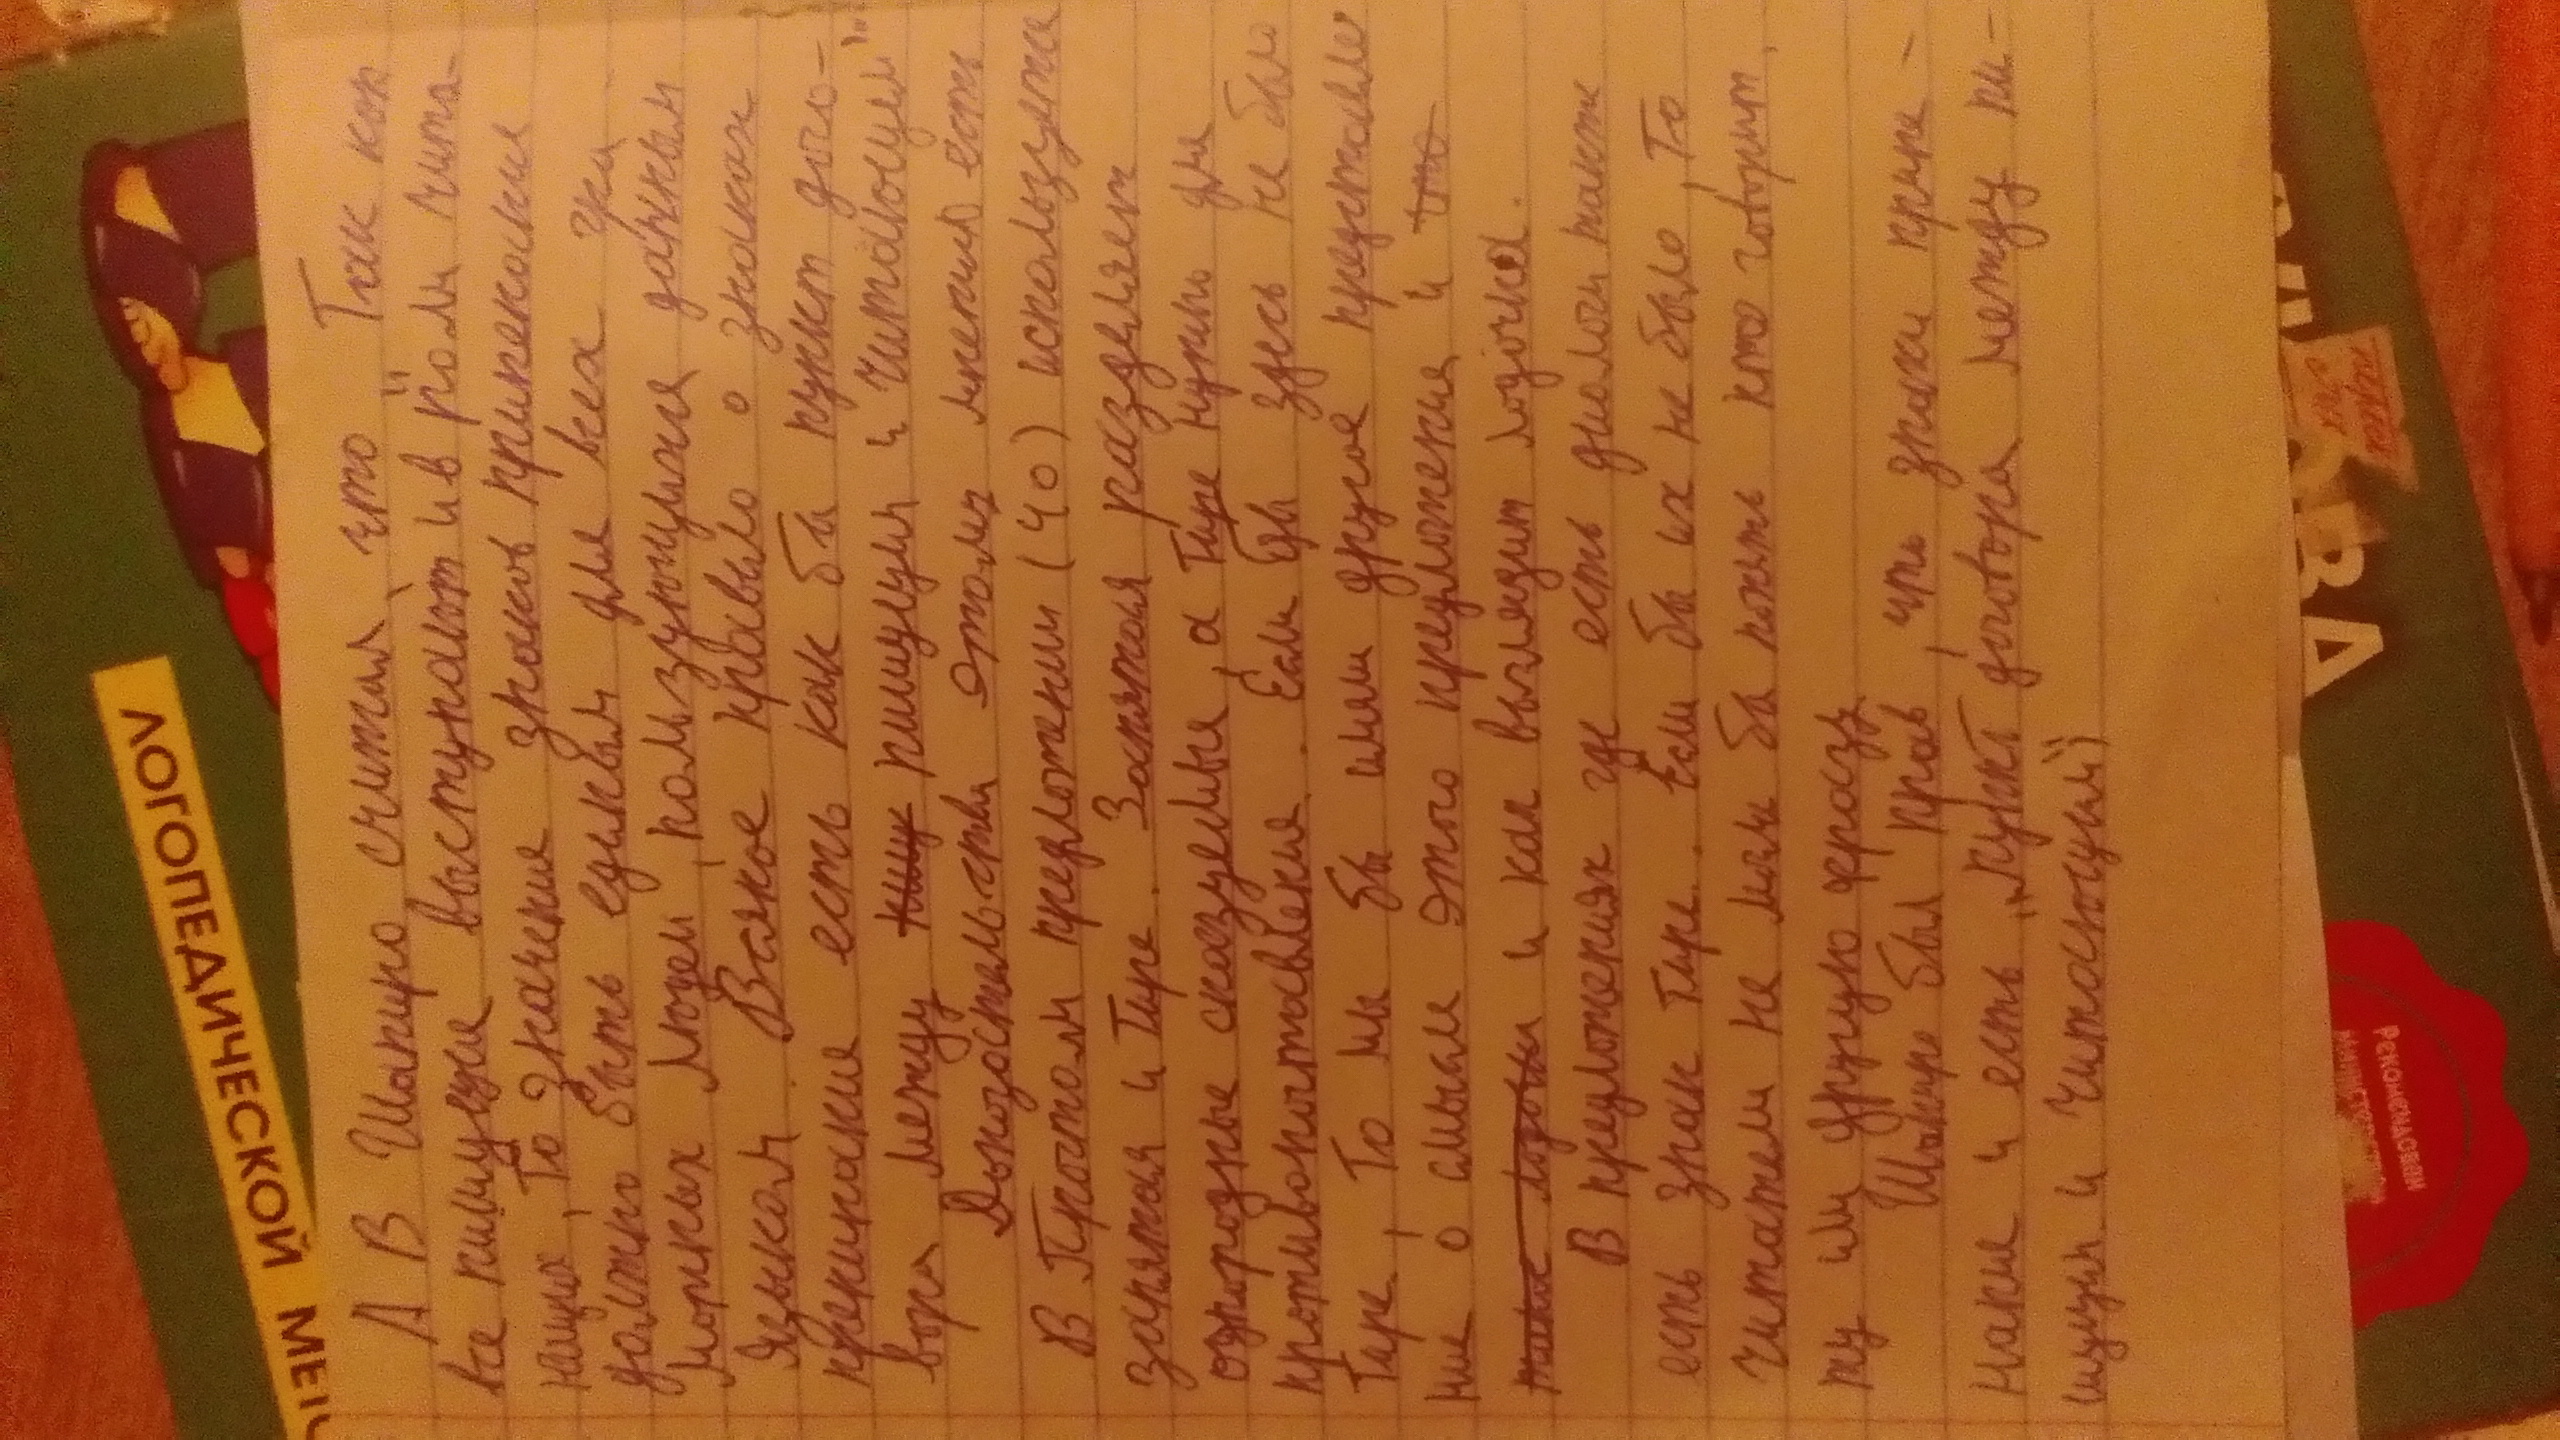 ЛОГОПЕДИЧЕСКОЙ
А В Шапиро считал, что Так как
все пишущие выступают и в роли чита-
ющих, То значение знаков припенания
должно быть единым для всех гра
мотных людей, пользующихся данным
языком. Всякое правило о знаках
препинание есть как бы пункт дого-
вора между пишущим и читающим".
Доказательства этому мнению есть
В Простом предложении (40) использумтся
запятая и Тире. Запятая разделяет
однородные сказуемые, а Тире нужно для
противопоставления. Если бы здесь не было
Тире, То мы бы имели другое представле
ние о смысле этого предложения и
и как выглядит лодочка.
В предложениях где есть диалоги также
есть знак Тире. Если бы их не было, То
читатели не могли бы понять кто говорит,
ту или другую фразу
Шапиро был прав, что знаки препи-
нание и есть „пункт договора между пи-
шущим и читающим")
Рекомендовано